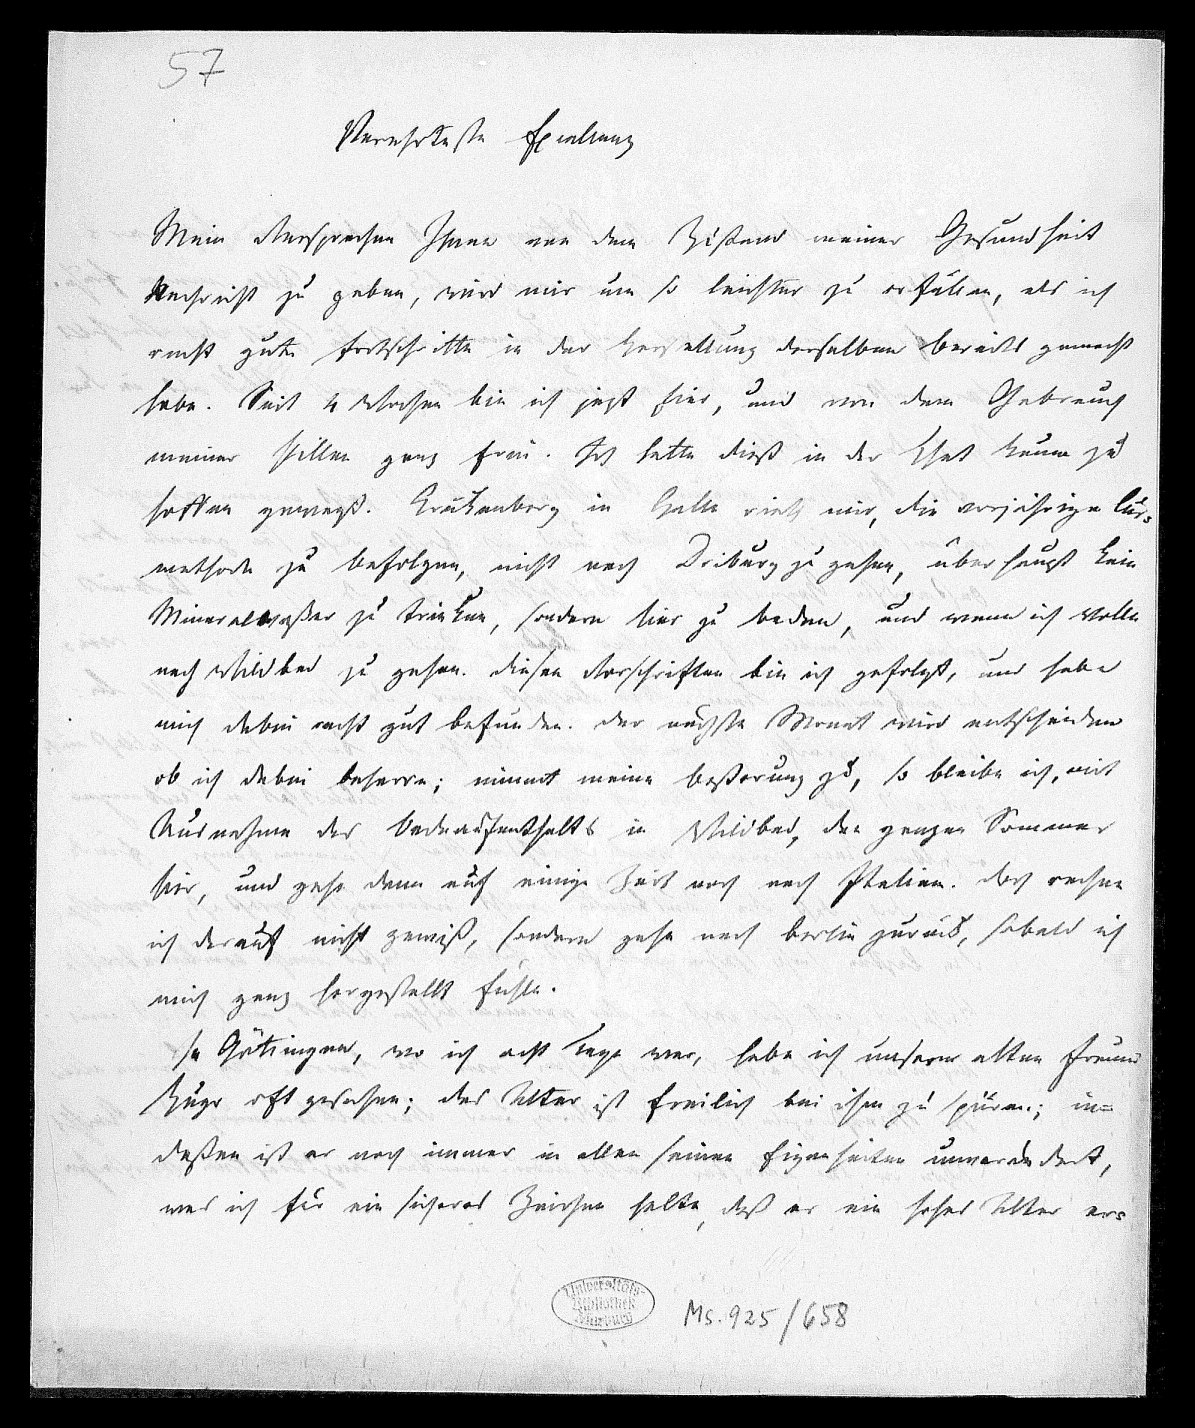 57
Verehrteste Excellenz
Mein Versprechen Ihnen von dem Zustand meiner Gesundheit
Nachricht zu geben, wird mir um so leichter zu erfüllen, als ich
recht gute Fortschritte in der Herstellung derselben bereits gemacht
habe. Seit 4 Wochen bin ich jezt hier, und von dem Gebrauch
meiner Pillen ganz frei. Ich hatte dieß in der That kaum zu
hoffen gewagt. Krukenberg in Halle rieth mir, die vorjährige Cur-
methode zu befolgen, nicht nach Driburg zu gehen, überhaupt kein
Mineralwaßer zu trinken, sondern hier zu baden, und wenn ich wolle
nach Wildbad zu gehen. Diesen Vorschriften bin ich gefolgt, und habe
mich dabei recht gut befunden. Der nächste Monat wird entscheiden
ob ich dabei beharre; nimmt meine Beßerung zu, so bleibe ich, mit
Ausnahme des Badeaufenthalts in Wildbad, den ganzen Sommer
hier, und gehe dann auf einige Zeit noch nach Italien. Doch rechne
ich darauf nicht gewiß, sondern gehe nach Berlin zurück, sobald ich
mich ganz hergestellt fühle.
In Göttingen, wo ich acht Tage war, habe ich unseren alten Freund
Hugo oft gesehen; das Alter ist freilich bei ihm zu spüren; in=
deßen ist er noch immer in allen seinen Eigenheiten unverändert,
was ich für ein sicheres Zeichen halte, daß er ein hohes Alter er=
Universitäts-
Bibliothek
Marburg
Ms. 925/658